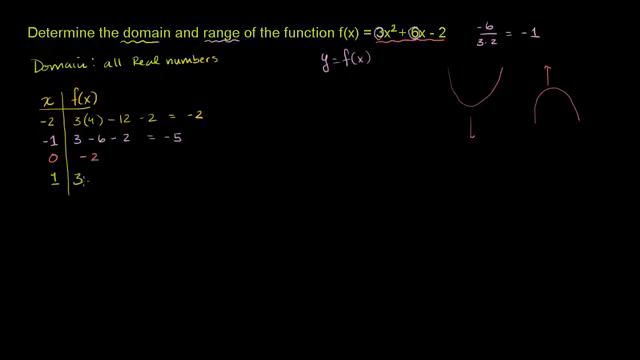 Determine the domain and range of the function f(x) = 3x² + 6x - 2
-6 / 3·2 = -1
Domain: all Real numbers
y = f(x)
x f(x)
-2 3(4) - 12 - 2 = -2
-1 3 - 6 - 2 = -5
0 -2
1 3